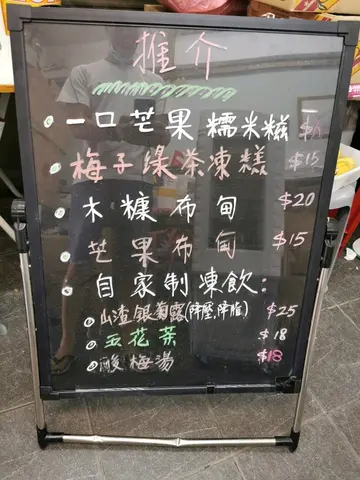 推介
一口芒果糯米糍
梅子绿茶凍糕 $15
木糠布甸 $20
芒果布甸 $15
自家制凍飲:
山渣銀菊露(降壓,降脂) $25
五花茶 $18
酸梅湯 $18